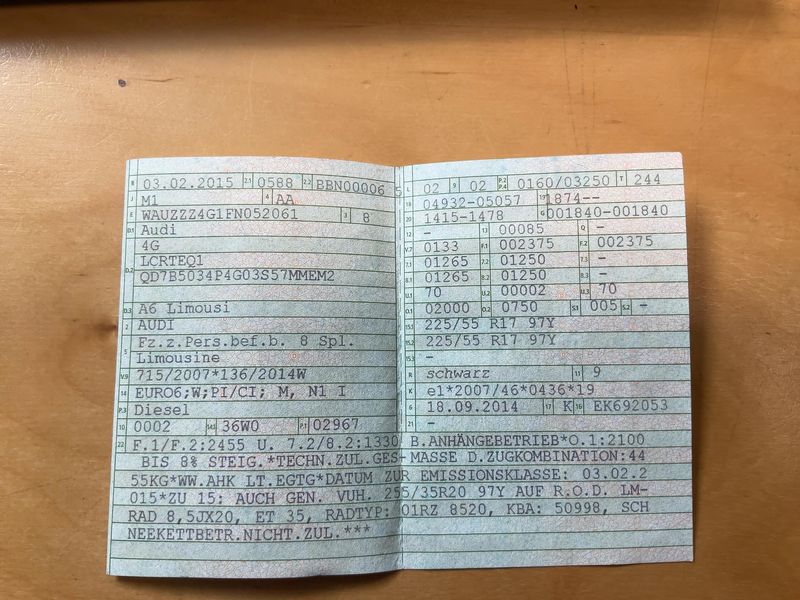 B 03.02.2015 2.1 0588 2.2 BBN00006 5
J M1 4 AA
E WAUZZZ4G1FN052061 3 8
D.1 Audi
4G
D.2 LCRTEQ1
QD7B5034P4G03S57MMEM2
D.3 A6 Limousi
2 AUDI
5 Fz.z.Pers.bef.b. 8 Spl.
Limousine
V.9 715/2007*136/2014W
14 EURO6;W;PI/CI; M, N1 I
P.3 Diesel
10 0002 14.1 36W0 P.1 02967
L 02 9 02 P.2 P.4 0160/03250 T 244
18 04932-05057 19 1874--
20 1415-1478 G 001840-001840
12 - 13 00085 Q -
V.7 0133 F.1 002375 F.2 002375
7.1 01265 7.2 01250 7.3 -
8.1 01265 8.2 01250 8.3 -
U.1 70 U.2 00002 U.3 70
O.1 02000 O.2 0750 S.1 005 S.2 -
15.1 225/55 R17 97Y
15.2 225/55 R17 97Y
15.3 -
R schwarz 11 9
K e1*2007/46*0436*19
6 18.09.2014 17 K 16 EK692053
21 -
22 F.1/F.2:2455 U. 7.2/8.2:1330 B.ANHÄNGEBETRIEB*O.1:2100
BIS 8% STEIG.*TECHN.ZUL.GES-MASSE D.ZUGKOMBINATION:44
55KG*WW.AHK LT.EGTG*DATUM ZUR EMISSIONSKLASSE: 03.02.2
015*ZU 15: AUCH GEN. VUH. 255/35R20 97Y AUF R.O.D. LM-
RAD 8,5JX20, ET 35, RADTYP: 01RZ 8520, KBA: 50998, SCH
NEEKETTBETR.NICHT.ZUL.***